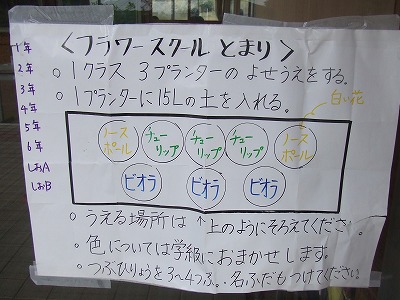 <フラワースクール とまり>
1年
2年
3年
4年
5年
6年
しおA
しおB
○1クラス 3プランターの よせうえをする。
○1プランターに15Lの土を入れる。
白い花
ノースポール
チューリップ
チューリップ
チューリップ
ノースポール
ビオラ
ビオラ
ビオラ
○うえる場所は↑上のようにそろえてください。
・色については学級におまかせします。
・つぶひりょうを3~4つぶ。・名ふだもつけてください